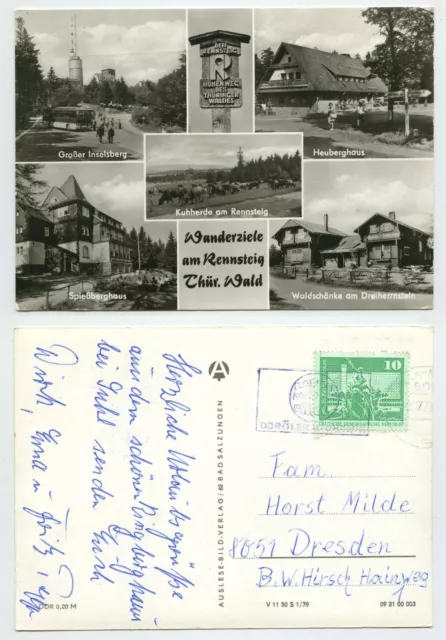 DER
RENNSTEIG
R
HÖHENWEG
DES
THÜRINGER
WALDES
Großer Inselsberg
Heuberghaus
Kuhherde am Rennsteig
Spießberghaus
Wanderziele
am Rennsteig
Thür. Wald
Waldschänke am Dreiherrnstein
Herzliche Urlaubsgrüße
aus dem schönen Ringberghaus
bei Suhl senden Euch
Erna u. Fritz
A
AUSLESE-BILD-VERLAG / BAD SALZUNGEN
10
Fam.
Horst Milde
8051 Dresden
B. W. Hirsch Hainweg
DDR 0,20 M
V 11 50 S 1/79
09 31 00 003